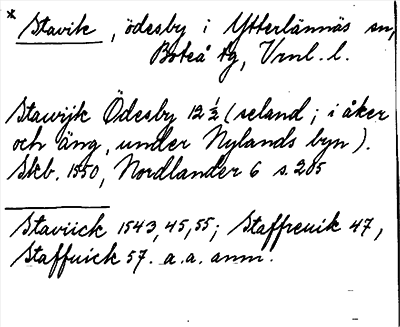 * Stavik, ödesby i Ytterlännäs sn,
Boteå tg, Vrnl. l.
Stawijk Ödesby 12 ½ (seland; i åker
och äng, under Nylands byn).
Skb. 1550, Nordlander 6 s. 285
Staviick 1543, 45, 55; Staffreuik 47,
Staffuick 57. a. a. anm.